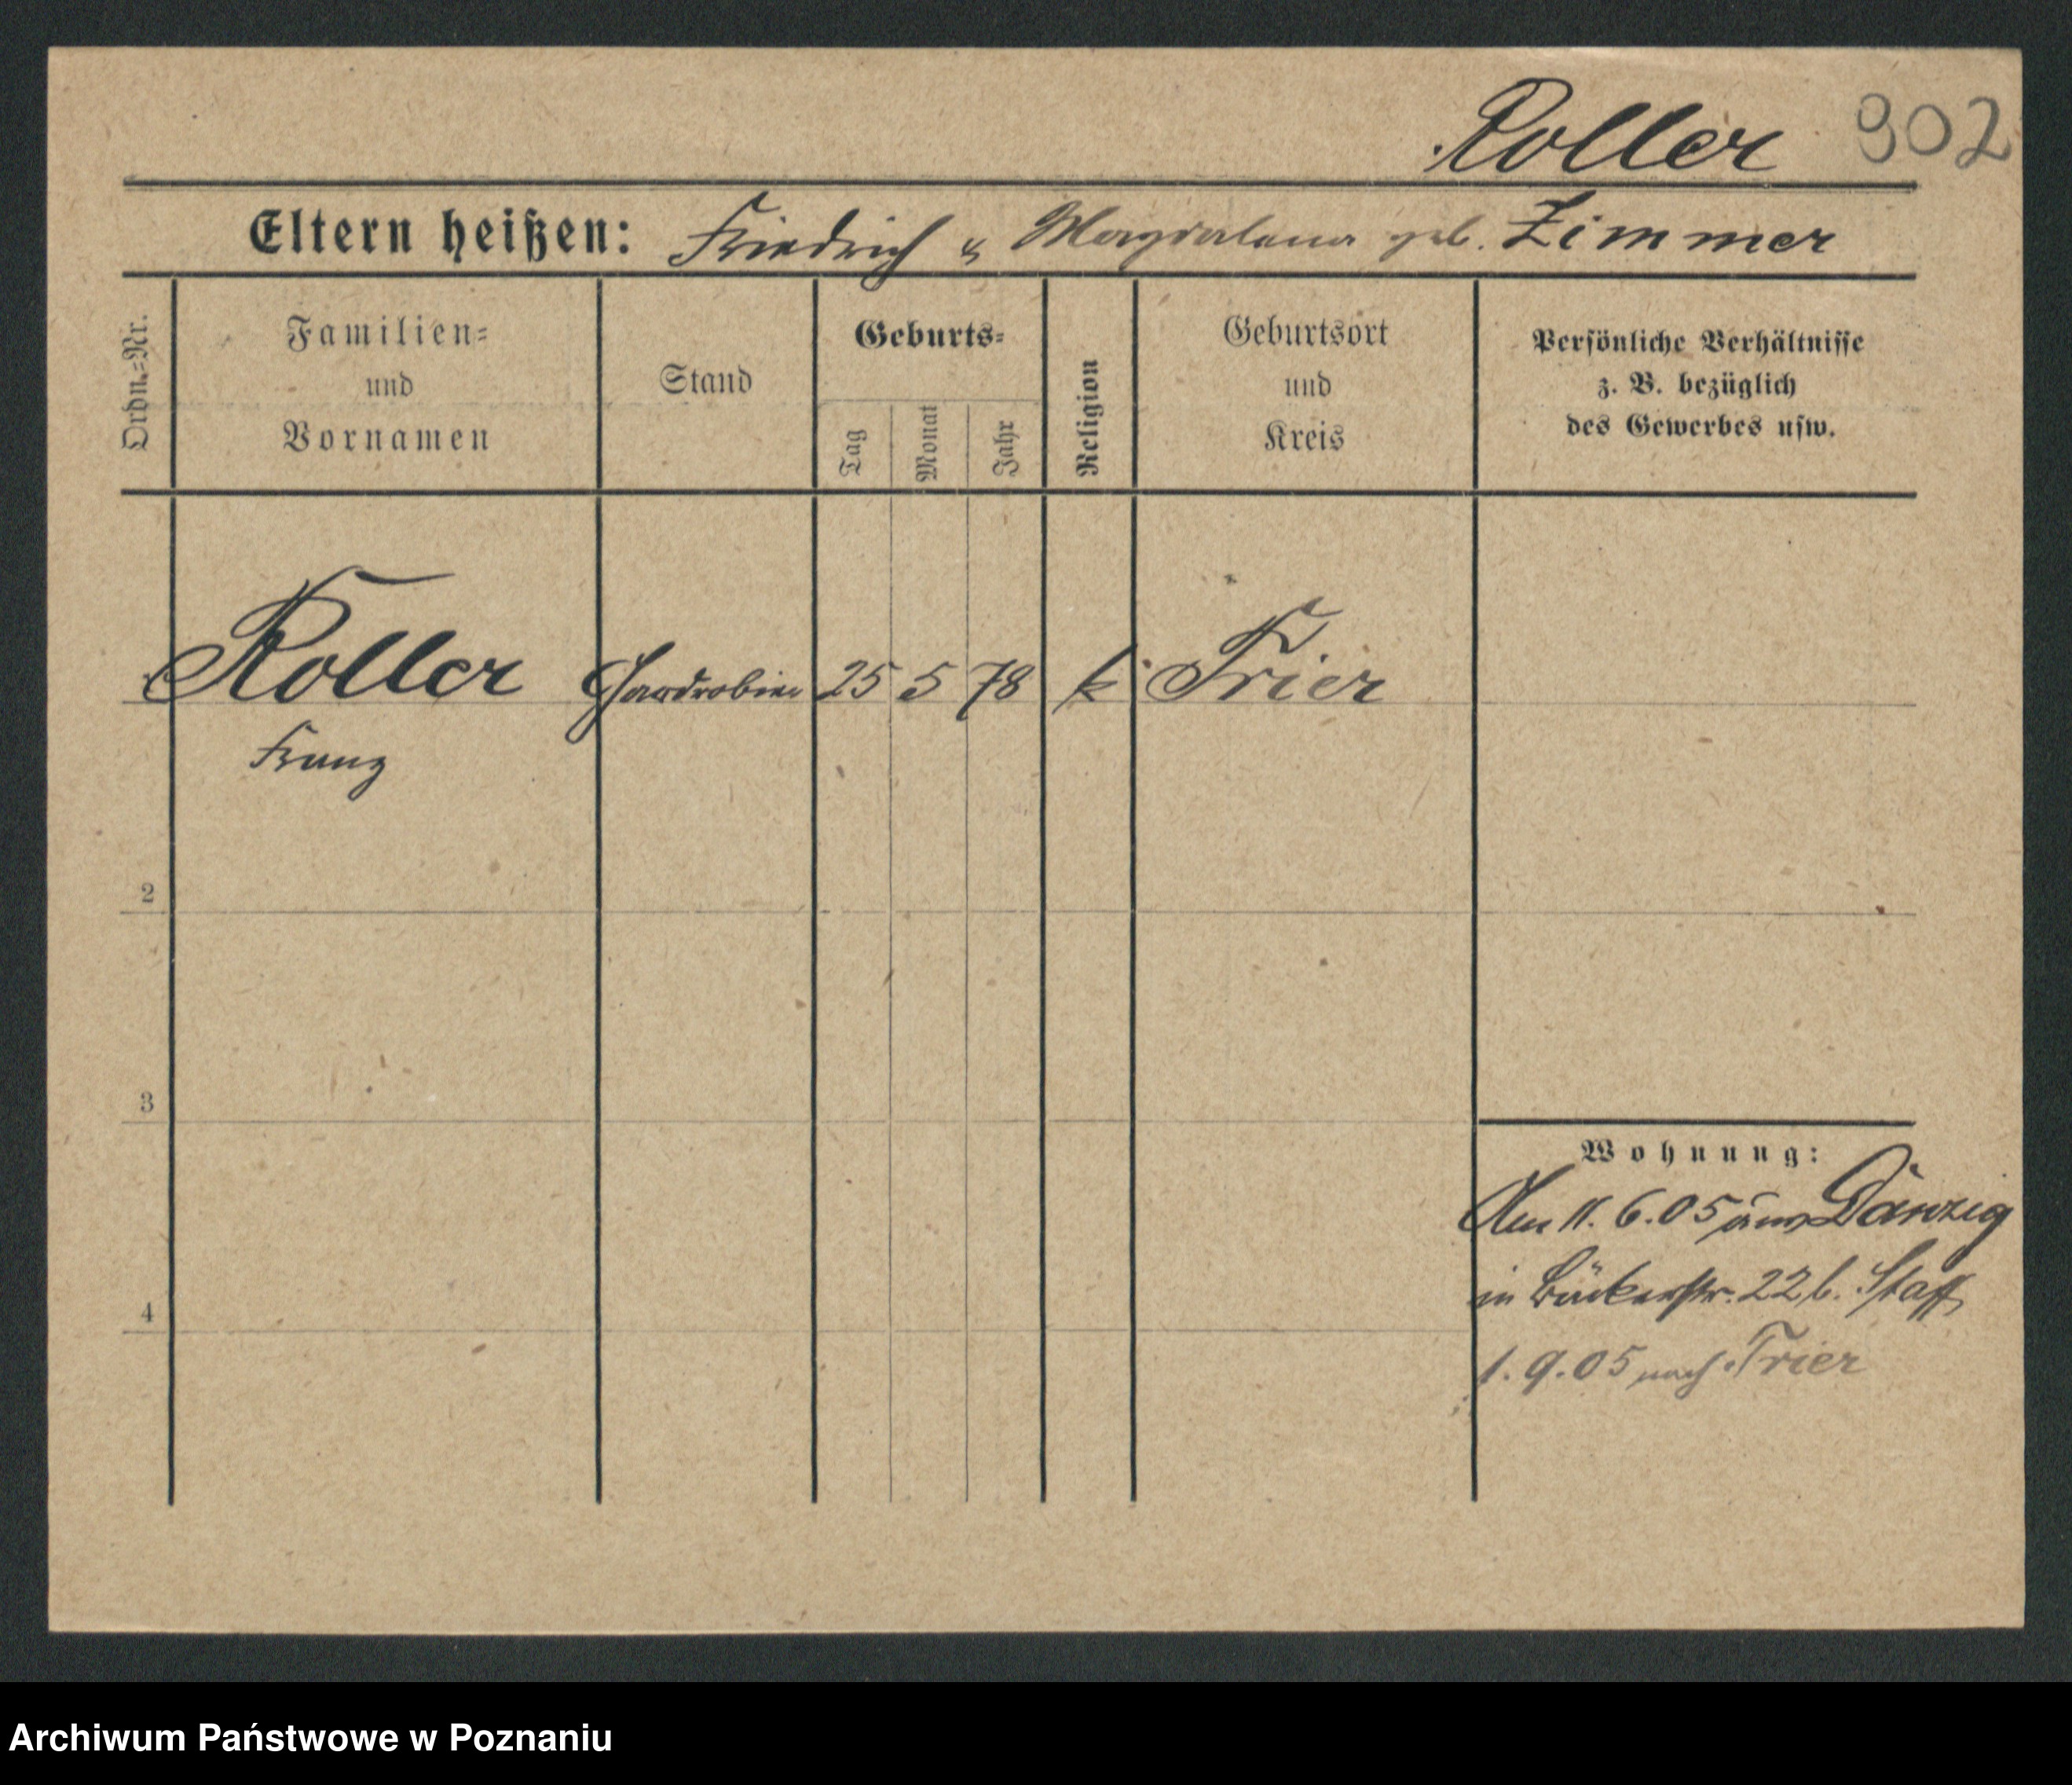 Roller 902
Eltern heißen: Friedrich u Magdalena geb. Zimmer
Ordn.=Nr.
Familien=
und
Vornamen
Stand
Geburts=
Tag
Monat
Jahr
Religion
Geburtsort
und
Kreis
Persönliche Verhältnisse
z. B. bezüglich
des Gewerbes usw.
Roller Gardrobier 25 5 78 k Trier
Franz
2
3
4
Wohnung:
Am 11. 6. 05 aus Danzig
in Bäckerstr. 22 b. Staff
1. 9. 05 nach Trier
Archiwum Państwowe w Poznaniu